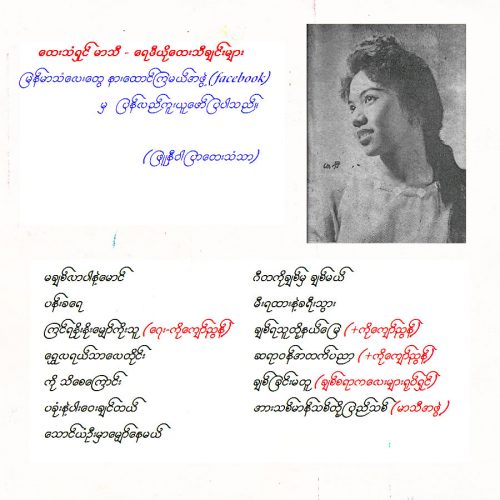 တေးသံရှင် မာသီ - ရေဒီယိုတေးသီချင်းများ
မြန်မာသံလေးတွေ နားထောင်ကြမယ်အဖွဲ့ (facebook)
မှ ပြန်လည်ကူးယူဖော်ပြပါသည်။
(ဖြူနီဝါပြာတေးသံသာ)
မာသီ
မချစ်လာပါနဲ့မောင်
ပန်းခရေ
ကြင်ရနိုးနိုးမျှော်ကိုးသူ (ရေး-ကိုကျော်ညွန့်)
ရွှေလရယ်သာလေတိုင်း
ကို သိစေကြောင်း
ပခုံးနဲ့ပါးဝေးချင်တယ်
သောင်ယံဦးမှာမျှော်နေမယ်
ဂီတကိုချစ်မှ ချစ်မယ်
မီးရထားနဲ့ခရီးသွား
ချစ်ရသူတို့နယ်မြေ (+ကိုကျော်ညွန့်)
ဆရာဝန်အတက်ပညာ (+ကိုကျော်ညွန့်)
ချစ်ခြင်းမေတ္တာ (ချစ်စရာကလေးများရုပ်ရှင်)
အားသစ်မာန်သစ်တို့ပြည်သစ် (မာသီအဖွဲ့)